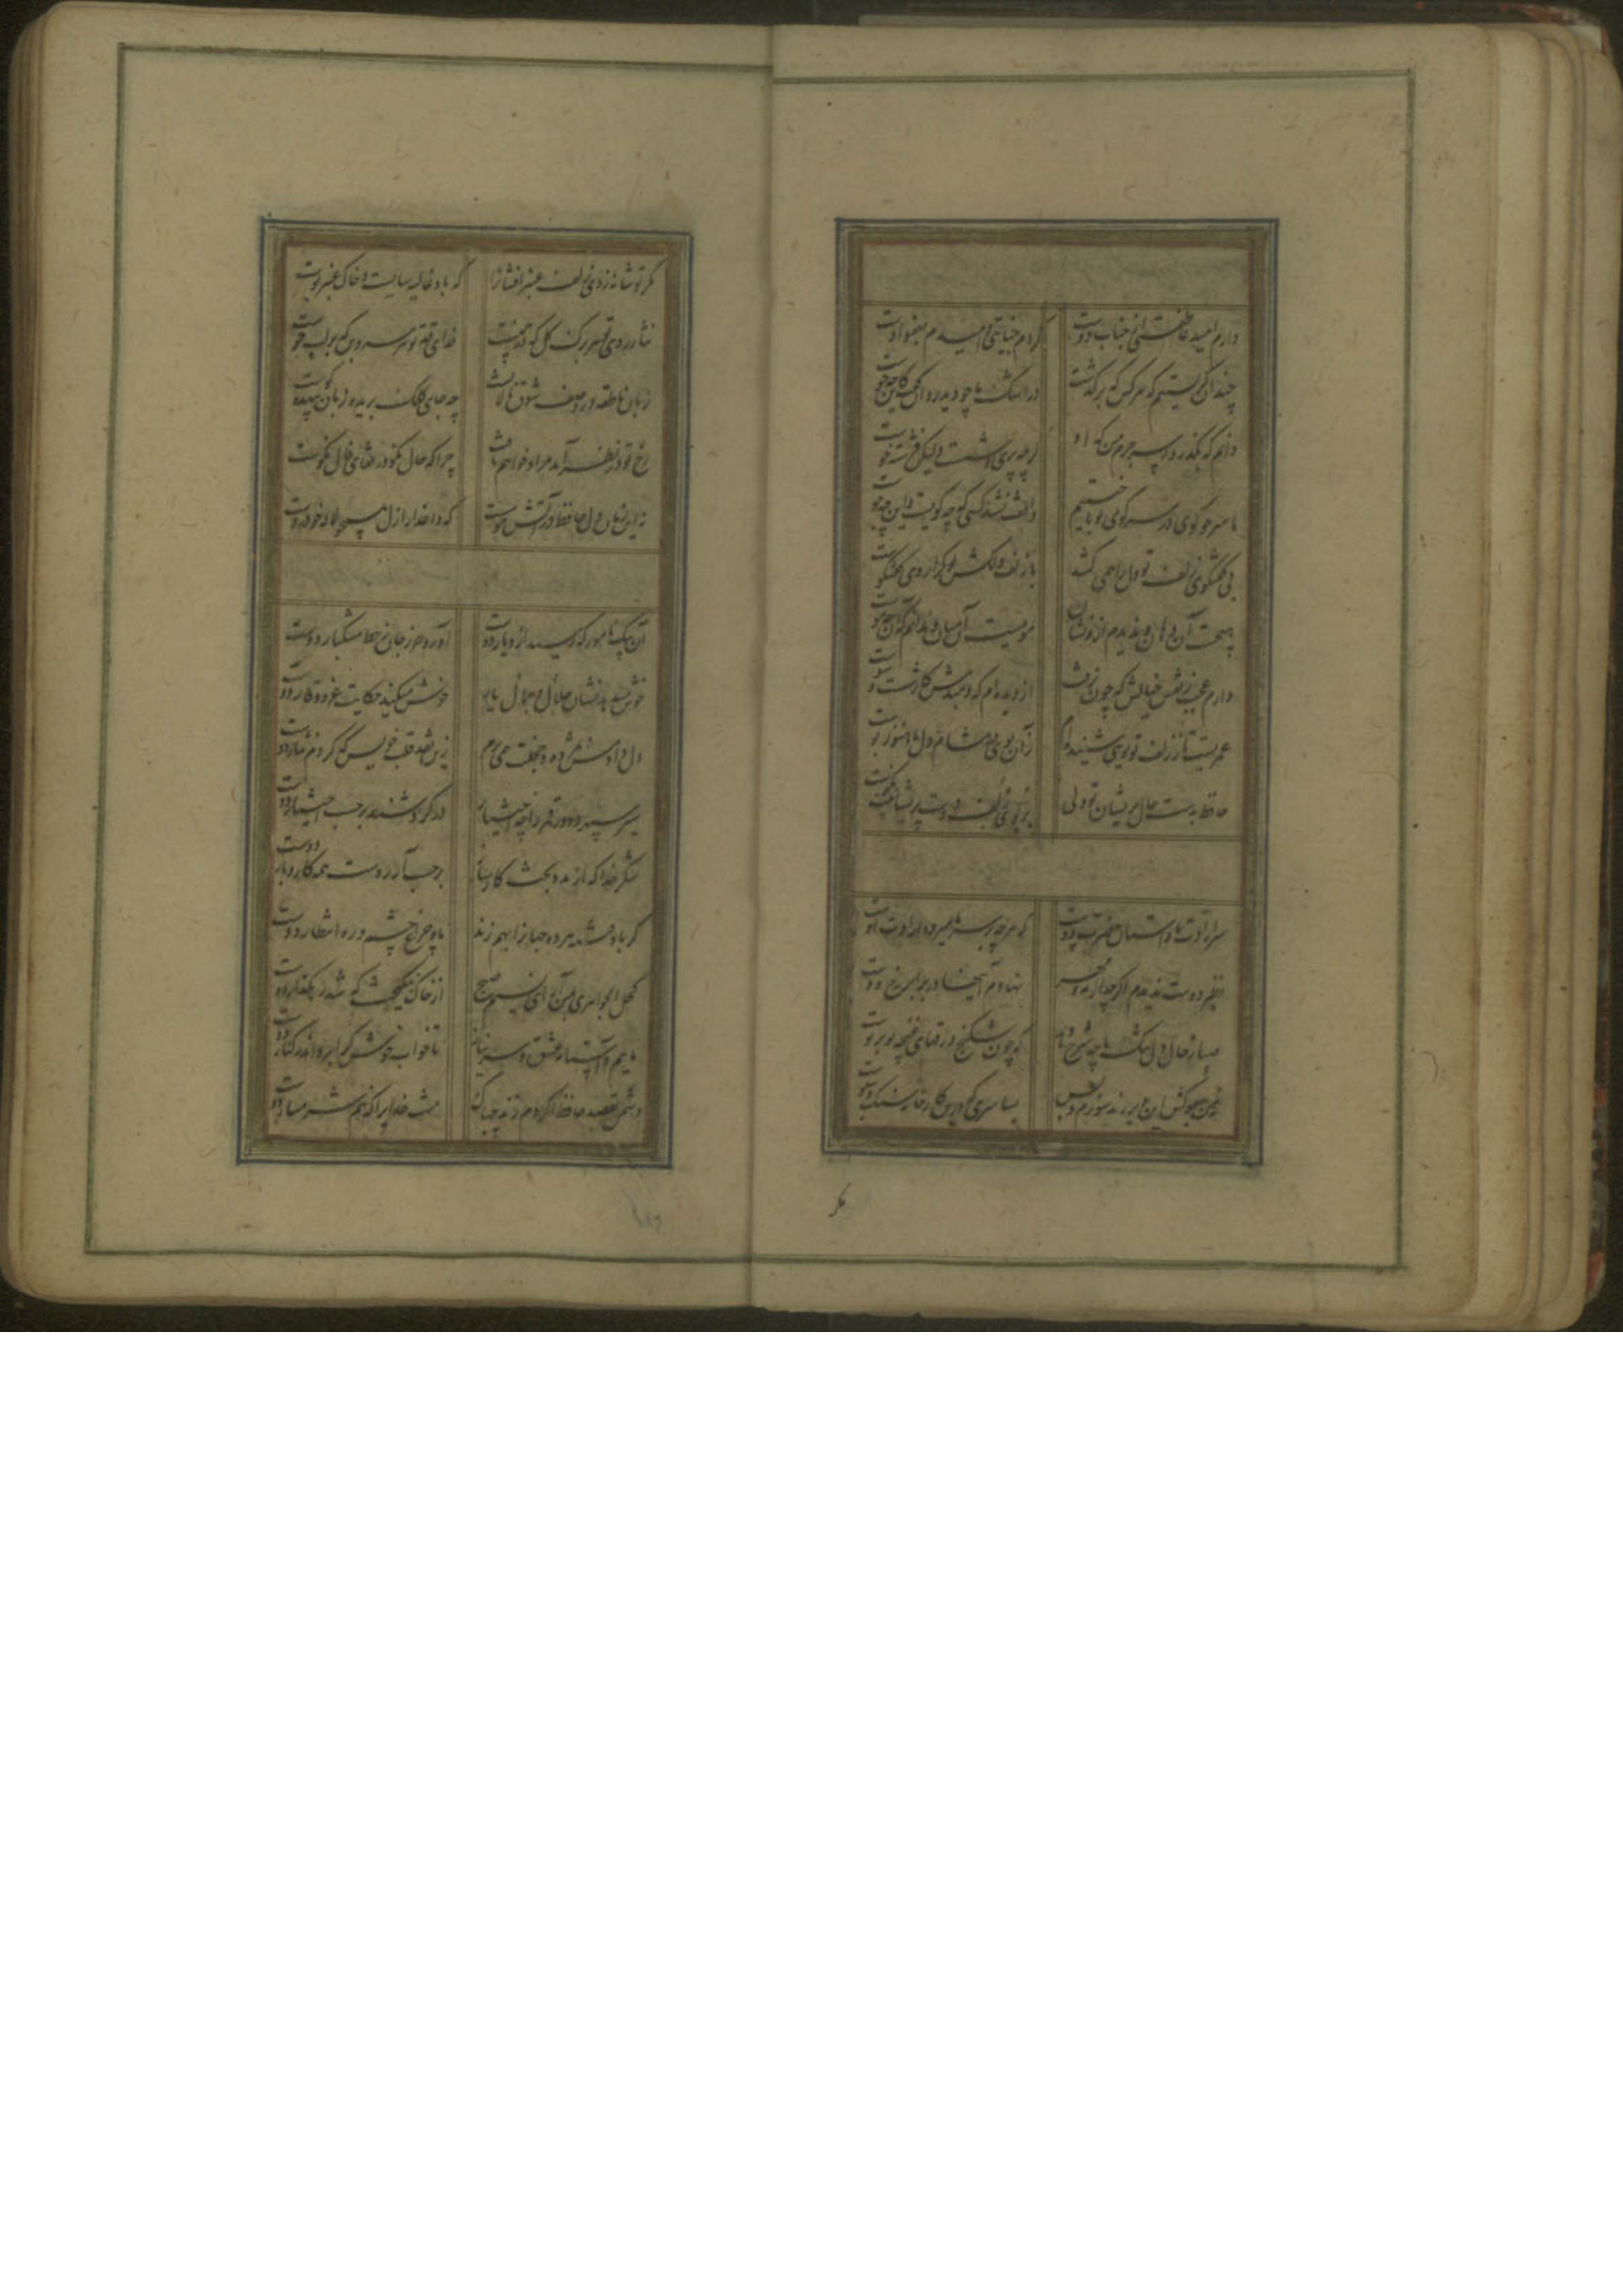 دارم امید عاطفتی از جناب دوست کردم جنایتی و امیدم بعفو اوست
چندان گریستیم که هر کس که برگذشت در اشک ما چو دید روان گفت کاین چه جوست
دانم که بگذرد ز سر جرم من که او گرچه پری وشست ولیکن فرشته خوست
ما سر چو گوی در سر کوی تو باختیم واقف نشد کسی که چه گویست و این چه کوست
بی گفتگوی زلف تو دل را همی کشد با زلف دلکش تو کرا روی گفتگوست
هیچست آن دهان و ندیدم ازو نشان مویست آن میان و ندانم که آن چه موست
دارم عجب ز نقش خیالش که چون نرفت از دیده ام که دمبدمش کار شست و شوست
عمریست تا ز زلف تو بوی شنیده ام زان بوی در مشام دل ما هنوز بوست
حافظ بدست حال پریشان تو ولی بر بوی زلف دوست پریشانیت نکوست
سر ارادت ما و آستان حضرت دوست که هر چه بر سر ما میرود ارادت اوست
نظیر دوست ندیدم اگر چه از مه و مهر نهادم آینها در برابر رخ دوست
صبا ز حال دل تنگ ما چه شرح دهد که چون شکنج ورقهای غنچه تو بر توست
نه من سبوکش این دیر رند سوزم و بس بسا سری که درین کارخانه سنگ و سبوست
مگر
مگر تو شانه زدی زلف عنبرافشانرا که باد غالیه سایست و خاک عنبر بوست
نثار روی تو هر برگ گل که در چمنست فدای قد تو هر سروبن که بر لب جوست
زبان ناطقه در وصف شوق ما لالست چه جای کلک بریده زبان بیهده گوست
رخ تو در نظر آمد مراد خواهم یافت چرا که حال نکو در قفای فال نکوست
نه این زمان دل حافظ در آتش هوست که داغدار ازل همچو لاله خودروست
آن پیک نامور که رسید از دیار دوست آورد حرز جان ز خط مشکبار دوست
خوش میدهد نشان جلال و جمال یار خوش میکند حکایت عز و وقار دوست
دل دادمش بمژده و خجلت همی برم زین نقد قلب خویش که کردم نثار دوست
سیر سپهر و دور قمر را چه اختیار در گردشند بر حسب اختیار دوست
شکر خدا که از مدد بخت کارساز بر حسب آرزوست همه کار و بار دوست
گر باد فتنه هر دو جهانرا بهم زند ما و چراغ چشم و ره انتظار دوست
کحل الجواهری بمن آر ای نسیم صبح از خاک نیکبخت که شد رهگذار دوست
مائیم و آستانه عشق و سر نیاز تا خواب خوش کرا برد اندر کنار دوست
دشمن بقصد حافظ اگر دم زند چه باک منت خدایرا که نیم شرمسار دوست